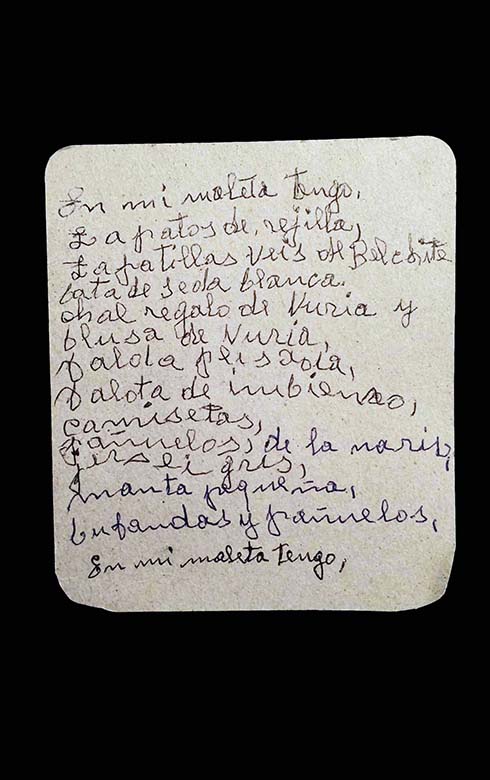 En mi maleta tengo,
Zapatos de rejilla,
Zapatillas veis de Belchite
bata de seda blanca.
chal regalo de Nuria y
blusa de Nuria,
falda plisada,
falda de imbienno,
camisetas,
pañuelos, de la naris,
jersei gris,
manta pequeña,
bufandas y pañuelos,
En mi maleta tengo,